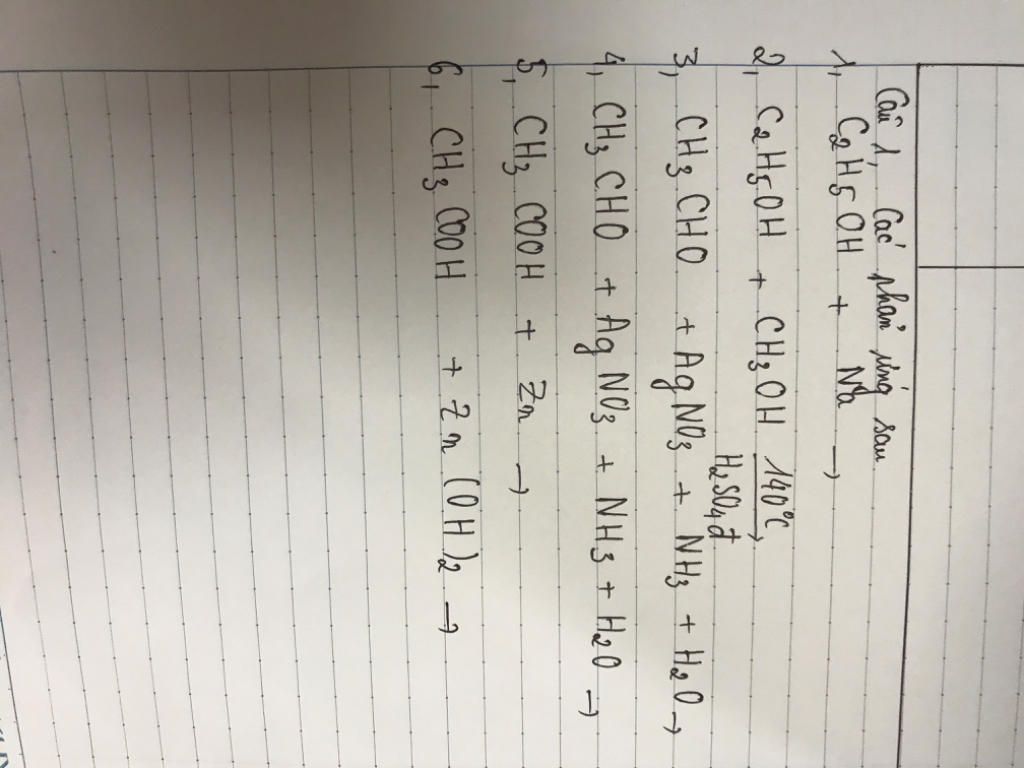 Câu 1, Các phản ứng sau
1, C2H5OH + Na →
2, C2H5OH + CH3OH 140°C →
H2SO4đ
3, CH3CHO + AgNO3 + NH3 + H2O →
4, CH3CHO + AgNO3 + NH3 + H2O →
5, CH3COOH + Zn →
6, CH3COOH + Zn(OH)2 →